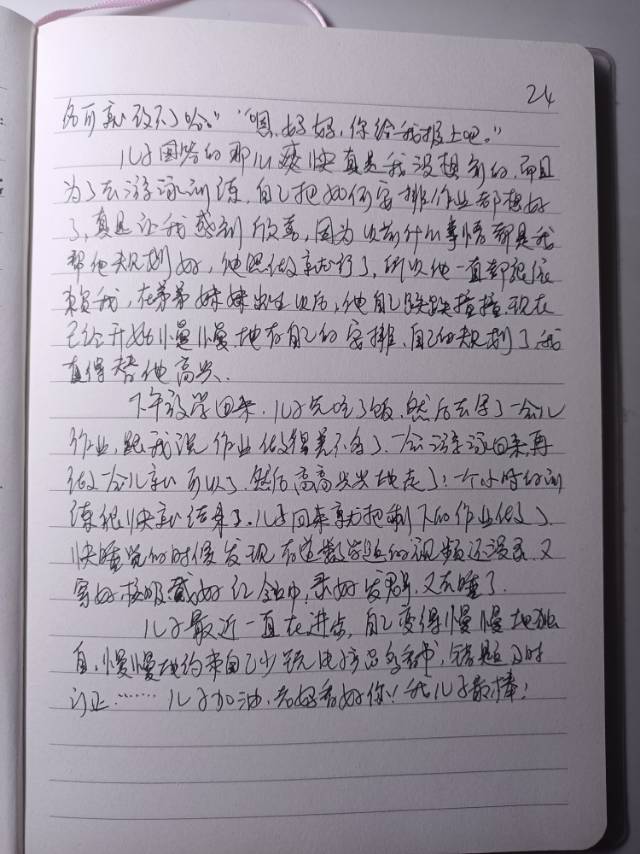 24
名可就改不了哈。”“嗯，好好，你给我报上吧。”
儿子回答的那么爽快真是我没想到的，而且
为了去游泳训练，自己把如何安排作业都想好
了，真是让我感到欣喜，因为以前什么事情都是我
帮他规划好，他照做就行了，所以他一直都很依
赖我，在弟弟妹妹出生以后，他自己跌跌撞撞现在
已经开始慢慢慢慢地有自己的安排、自己的规划了，我
真得替他高兴。
下午放学回来，儿子先吃了饭，然后去写了一会儿
作业，跟我说作业做得差不多了，一会游泳回来再
做一会儿就可以了，然后高高兴兴地走了！一个小时的训
练很快就结束了，儿子回来就把剩下的作业做了，
快睡觉的时候发现有道数学题的视频还没录，又
拿好 戴好红领巾，录好发群，又去睡了。
儿子最近一直在进步，自己变得慢慢地独
自，慢慢地约束自己少玩电子产品， 错题及时
订正……儿子加油，老妈看好你！我儿子最棒！